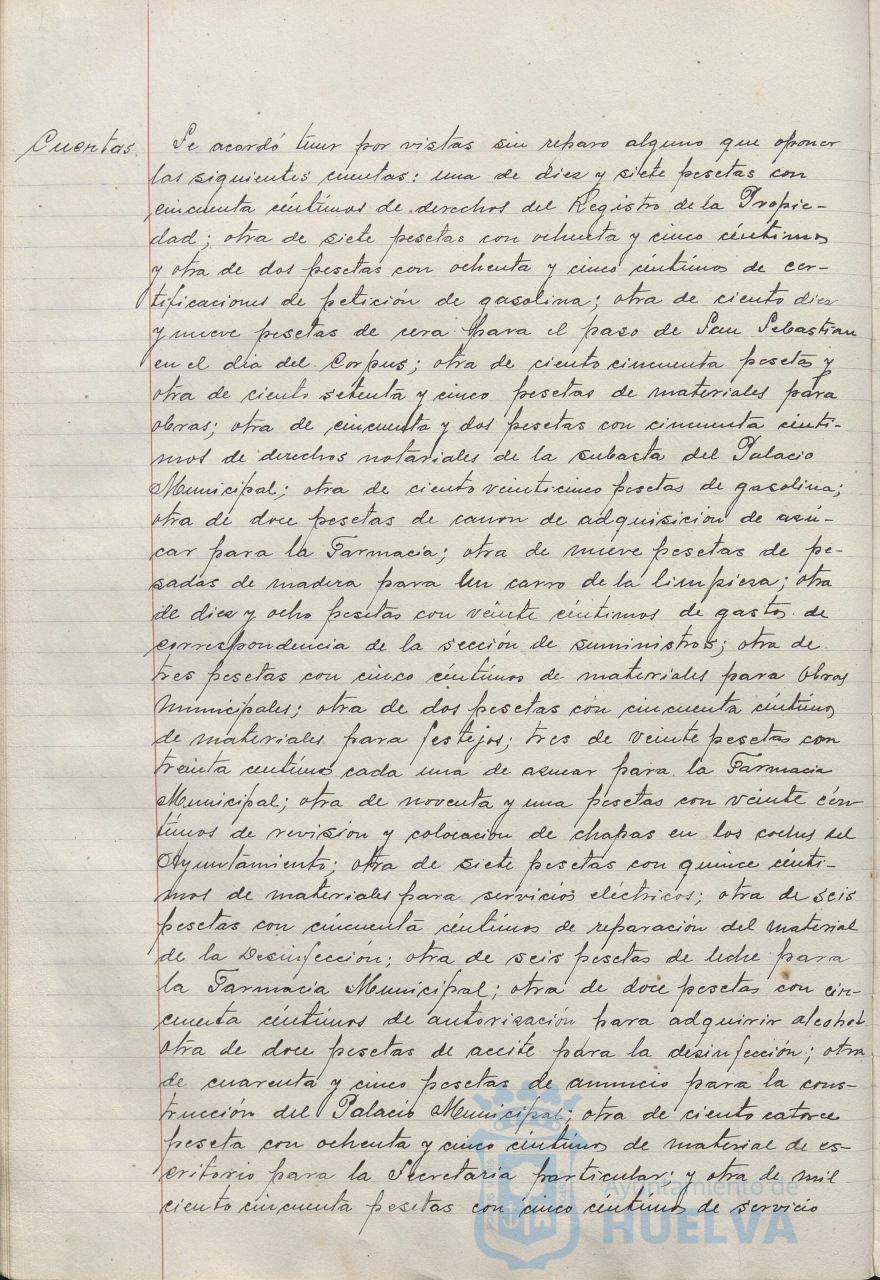 Cuentas
Se acordó tener por vistas sin reparo alguno que oponer
las siguientes cuentas: una de diez y siete pesetas con
cincuenta céntimos de derechos del Registro de la Propie-
dad; otra de siete pesetas con ochenta y cinco céntimos
y otra de dos pesetas con ochenta y cinco céntimos de cer-
tificaciones de petición de gasolina; otra de ciento diez
y nueve pesetas de cera para el paso de San Sebastian
en el dia del Corpus; otra de ciento cincuenta pesetas y
otra de ciento setenta y cinco pesetas de materiales para
obras; otra de cincuenta y dos pesetas con cincuenta cénti-
mos de derechos notariales de la subasta del Palacio
Municipal; otra de ciento veinticinco pesetas de gasolina;
otra de doce pesetas de canon de adquisición de azú-
car para la Farmacia; otra de nueve pesetas de pe-
sadas de madera para un carro de la limpieza; otra
de diez y ocho pesetas con veinte céntimos de gastos de
correspondencia de la sección de suministros; otra de
tres pesetas con cinco céntimos de materiales para obras
municipales; otra de dos pesetas con cincuenta céntimos
de materiales para festejos; tres de veinte pesetas con
treinta centimos cada una de azucar para la Farmacia
Municipal; otra de noventa y una pesetas con veinte cén-
timos de revision y colocacion de chapas en los coches del
Ayuntamiento; otra de siete pesetas con quince cénti-
mos de materiales para servicios eléctricos; otra de seis
pesetas con cincuenta céntimos de reparación del material
de la Desinfección; otra de seis pesetas de leche para
la Farmacia Municipal; otra de doce pesetas con cin-
cuenta céntimos de autorización para adquirir alcohol
otra de doce pesetas de aceite para la desinfección; otra
de cuarenta y cinco pesetas de anuncio para la cons-
trucción del Palacio Municipal; otra de ciento catorce
peseta con ochenta y cinco céntimos de material de es-
critorio para la Secretaria particular; y otra de mil
ciento cincuenta pesetas con cinco centimos de servicio
Ayuntamiento de
HUELVA